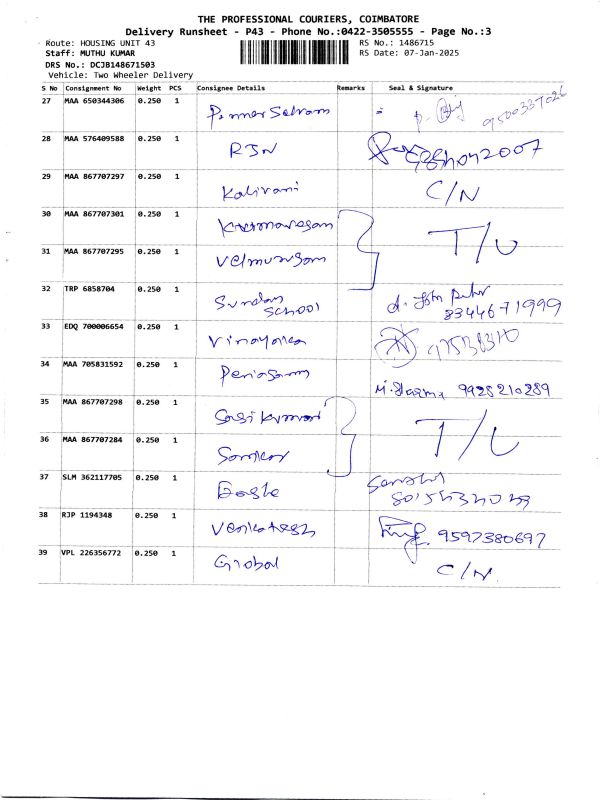 THE PROFESSIONAL COURIERS, COIMBATORE
Delivery Runsheet - P43 - Phone No.:0422-3505555 - Page No.:3
Route: HOUSING UNIT 43 RS No.: 1486715
Staff: MUTHU KUMAR RS Date: 07-Jan-2025
DRS No.: DCJB148671503
Vehicle: Two Wheeler Delivery
S No Consignment No Weight PCS Consignee Details Remarks Seal & Signature
27 MAA 650344306 0.250 1 9500337026
28 MAA 576409588 0.250 1 RJN
29 MAA 867707297 0.250 1 Kalivani C/N
30 MAA 867707301 0.250 1 Kumaresan T/U
31 MAA 867707295 0.250 1 Velmurugan
32 TRP 6858704 0.250 1 Sundar SCHOOL 8344671999
33 EDQ 700006654 0.250 1 Vinayaka
34 MAA 705831592 0.250 1 Periasamy M. Sharma 9928210289
35 MAA 867707298 0.250 1 Sasikumar T/U
36 MAA 867707284 0.250 1
37 SLM 362117705 0.250 1 Eagle
38 RJP 1194348 0.250 1 Venkatesh 9597380697
39 VPL 226356772 0.250 1 Global C/N.